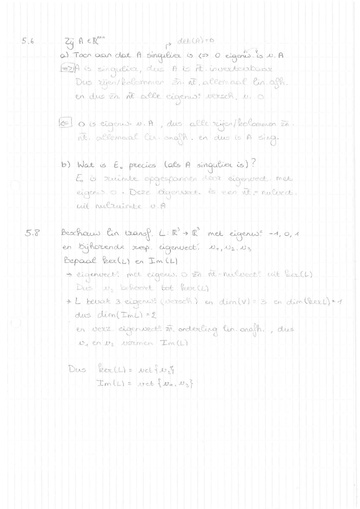 5.6 Zij A ∈ ℝⁿˣⁿ det(A)=0
a) Toon aan dat A singulier is ⇔ 0 eigenw. is v. A
⇒ A is singulier, dus A is nt. inverteerbaar
Dus rijen/kolommen zn nt. allemaal lin. afh.
en dus zn nt alle eigenw. versch. v. 0
⇐ 0 is eigenw. v. A, dus alle rijen/kolommen zn
nt. allemaal lin. onafh. en dus is A sing.
b) Wat is E₀ precies (als A singulier is)?
E₀ is ruimte opgespannen door eigenvect. met
eigenw. 0. Deze eigenvect. is een nt-nulvect.
uit nulruimte v. A
5.8 Beschouw lin transf. L: ℝ³ → ℝ³ met eigenw. -1, 0, 1
en bijhorende resp. eigenvect. v₁, v₂, v₃
Bepaal ker(L) en Im(L)
→ eigenvect. met eigenw. 0 zn nt-nulvect. uit ker(L)
Dus v₂ behoort tot ker(L)
→ L bevat 3 eigenw. (versch.) en dim(V) = 3 en dim(ker L) = 1
dus dim(Im L) = 2
en verz. eigenvect. zn onderling lin onafh., dus
v₁ en v₃ vormen Im(L)
Dus ker(L) = vct{v₂}
Im(L) = vct{v₁, v₃}